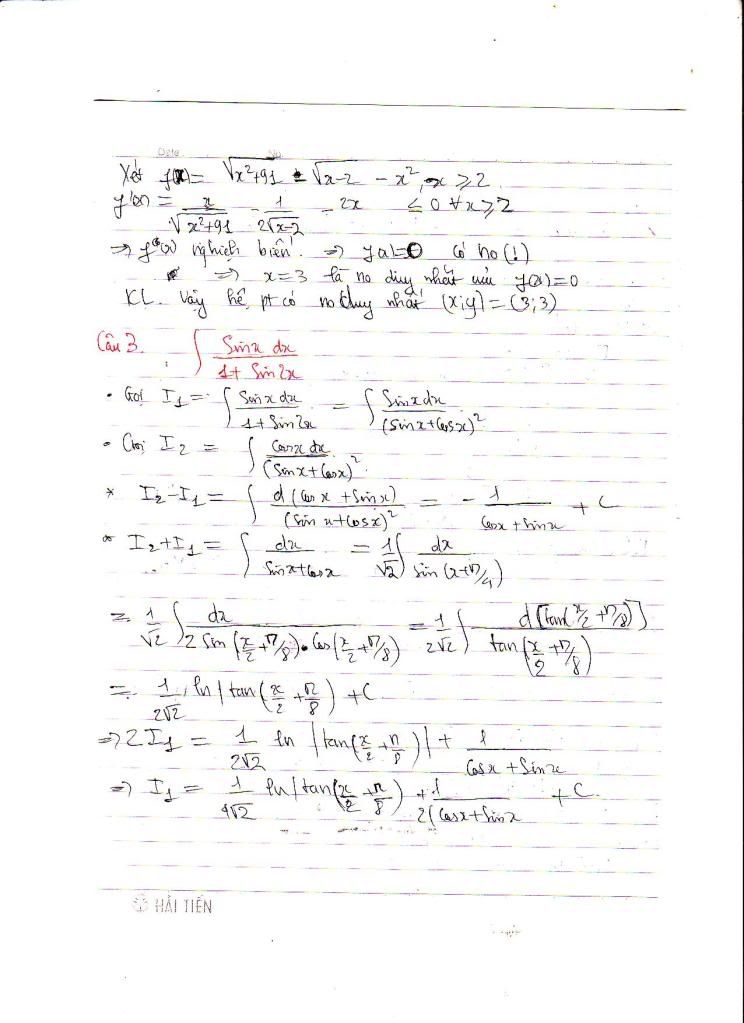 Xét f(x) = √(x²+91) - √(x-2) - x², x ≥ 2
f'(x) = x/√(x²+91) - 1/(2√(x-2)) - 2x ≤ 0 ∀x ≥ 2
⇒ f(x) nghịch biến. ⇒ f(x) = 0 có no (!)
⇒ x = 3 là no duy nhất của f(x) = 0
KL. Vậy hệ pt có no duy nhất (x;y) = (3;3)
Câu 3. ∫ Sinx dx/(1 + Sin2x)
• Gọi I₁ = ∫ Sinx dx/(1+Sin2x) = ∫ Sinx dx/(Sinx+Cosx)²
• Gọi I₂ = ∫ Cosx dx/(Sinx+Cosx)²
* I₂-I₁ = ∫ d(Cosx + Sinx)/(Sinx+Cosx)² = - 1/(Cosx + Sinx) + C
* I₂+I₁ = ∫ dx/(Sinx+Cosx) = 1/√2 ∫ dx/sin(x+π/4)
= 1/√2 ∫ dx/(2Sin(x/2+π/8)•Cos(x/2+π/8)) = 1/(2√2) ∫ d[tan(x/2+π/8)]/tan(x/2+π/8)
= 1/(2√2) ln|tan(x/2+π/8) + C
⇒ 2I₁ = 1/(2√2) ln |tan(x/2+π/8)| + 1/(Cosx + Sinx)
⇒ I₁ = 1/(4√2) ln|tan(x/2+π/8) + 1/(2(Cosx+Sinx) + C.
HẢI TIẾN